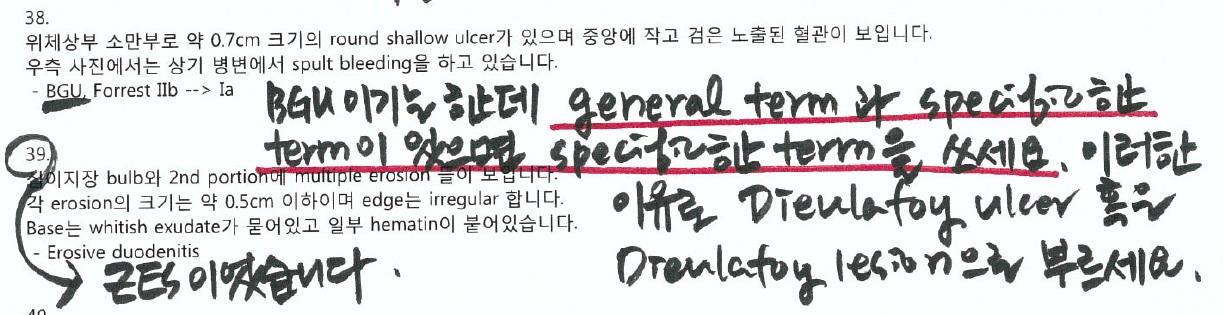 38.
위체상부 소만부로 약 0.7cm 크기의 round shallow ulcer가 있으며 중앙에 작고 검은 노출된 혈관이 보입니다.
우측 사진에서는 상기 병변에서 spult bleeding을 하고 있습니다.
- BGU, Forrest IIb --> Ia
BGU이기는 한데 general term과 specific한
term이 있으면 specific한 term을 쓰세요. 이러한
이유로 Dieulafoy ulcer 혹은
Dieulafoy lesion으로 부르세요.
39.
십이지장 bulb와 2nd portion에 multiple erosion 들이 보입니다.
각 erosion의 크기는 약 0.5cm 이하이며 edge는 irregular 합니다.
Base는 whitish exudate가 묻어있고 일부 hematin이 붙어있습니다.
- Erosive duodenitis
ZES이었습니다.